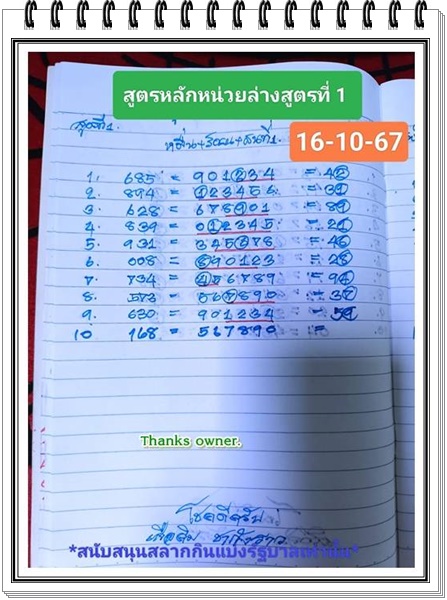 สูตรหลักหน่วยล่างสูตรที่ 1
สูตรที่1.
16-10-67
1. 685 = 901234 = 42
2. 894 = 123456 = 31
3. 628 = 678901 = 89
4. 839 = 012345 = 21
5. 931 = 345678 = 46
6. 008 = 890123 = 28
7. 734 = 456789 = 94
8. 573 = 567890 = 37
9. 630 = 901234 = 59
10 168 = 567890 =
Thanks owner.
โชคดีครับ
*สนับสนุนสลากกินแบ่งรัฐบาลเท่านั้น*